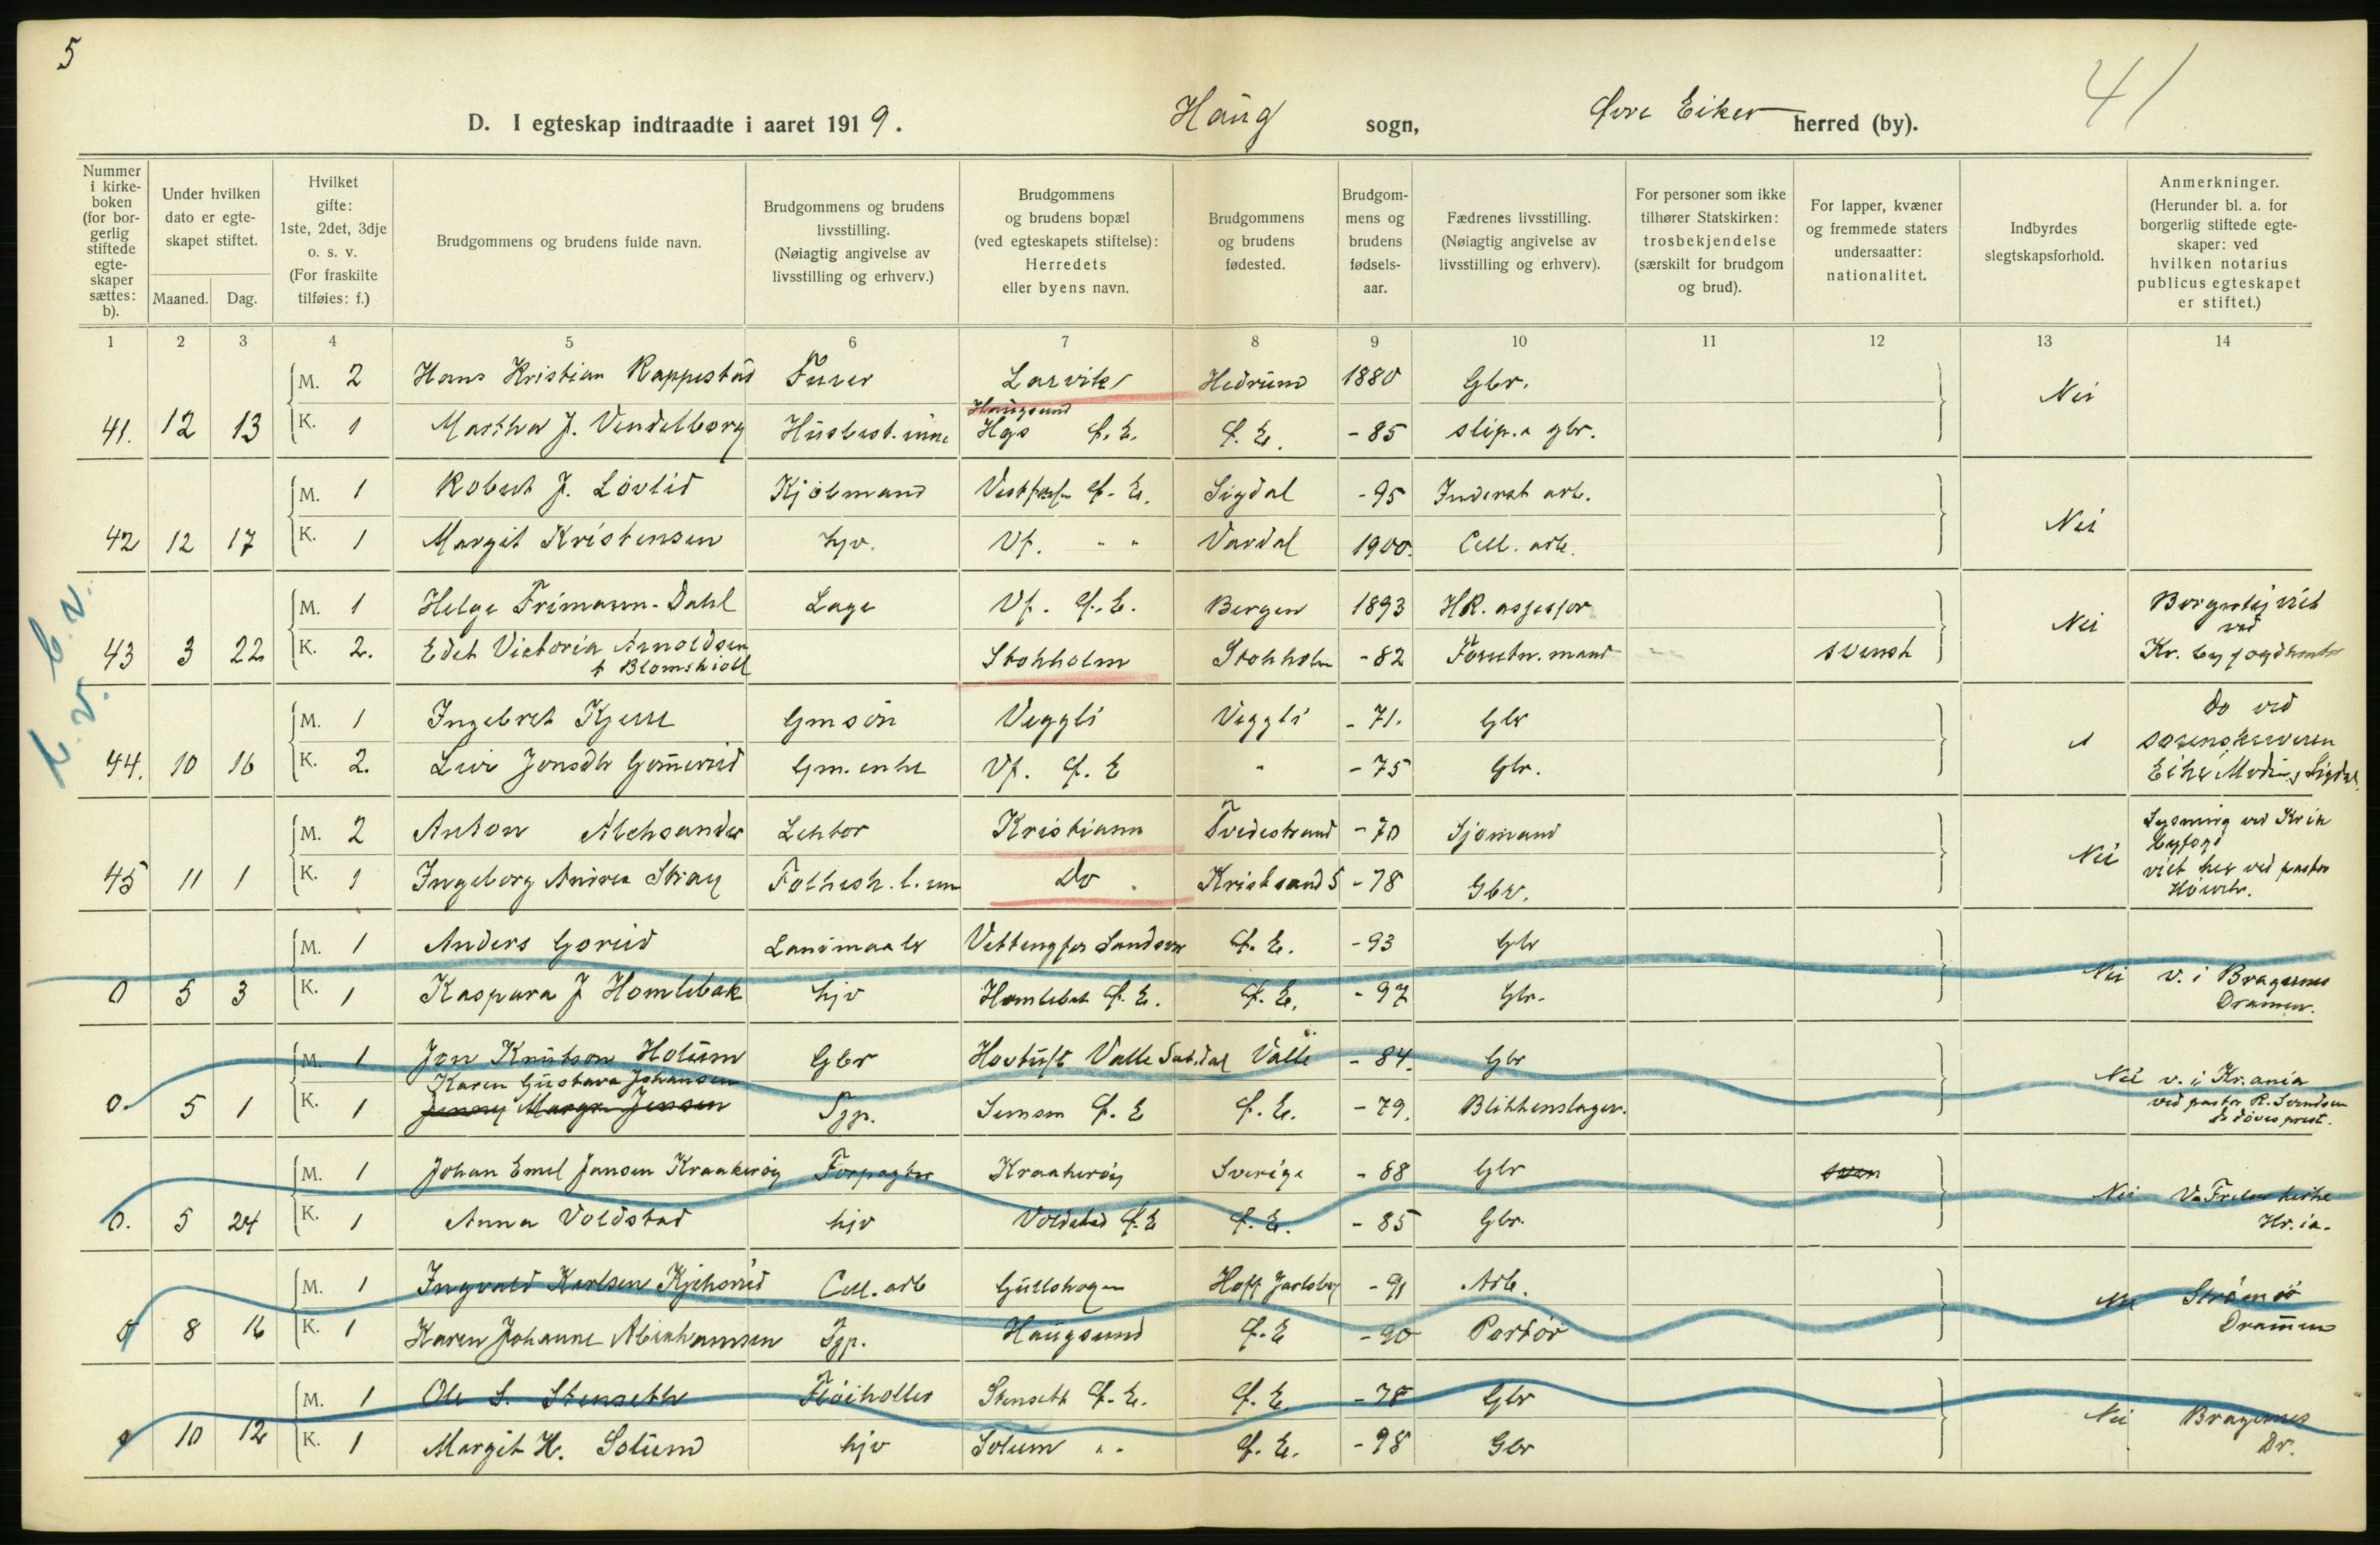 5
D. I egteskap indtraadte i aaret 1919. Haug sogn, Øvre Eiker herred (by). 41
Nummer i kirkeboken (for borgerlig stiftede egteskaper sættes: b).
Under hvilken dato er egteskapet stiftet.
Maaned. Dag.
Hvilket gifte: 1ste, 2det, 3dje o. s. v. (For fraskilte tilføies: f.)
Brudgommens og brudens fulde navn.
Brudgommens og brudens livsstilling. (Nøiagtig angivelse av livsstilling og erhverv.)
Brudgommens og brudens bopæl (ved egteskapets stiftelse): Herredets eller byens navn.
Brudgommens og brudens fødested.
Brudgommens og brudens fødselsaar.
Fædrenes livsstilling. (Nøiagtig angivelse av livsstilling og erhverv).
For personer som ikke tilhører Statskirken: trosbekjendelse (særskilt for brudgom og brud).
For lapper, kvæner og fremmede staters undersaatter: nationalitet.
Indbyrdes slegtskapsforhold.
Anmerkninger. (Herunder bl. a. for borgerlig stiftede egteskaper: ved hvilken notarius publicus egteskapet er stiftet.)
1 2 3 4 5 6 7 8 9 10 11 12 13 14
M. 2 Hans Kristian Rappestad Furer Larvik Hedrum 1880 Gbr. Nei
Haugsund
41. 12 13 K. 1 Martha J. Vendelborg Husbest.inne Hgs Ø. E. Ø. E. - 85 slip. a gbr.
M. 1 Robert J. Løvlid Kjøbmand Vestfossen Ø. E. Sigdal - 95 Inderst arb. Nei
42 12 17 K. 1 Margit Kristensen hjv. Vf. " " Vardal 1900. Cell. arb.
M. 1 Helge Frimann-Dahl Læge Vf. Ø. E. Bergen 1893 HR. assessor Nei Borgerlig viet ved
43 3 22 K. 2. Edit Victoria Arnoldsen f. Blomskiöll Stokholm Stokholm - 82 Forretn. mand svensk Kr. byfogdkontor
b. v. b. v.
M. 1 Ingebret Kjerre Gmsøn Veggli Veggli - 71. Gbr Do ved
44. 10 16 K. 2. Live Jonsdtr Gomerud Gm. enke Vf. Ø. E " - 75 Gbr. sorenskriveren Eiker Modum, Sigdal.
M. 2 Anton Aleksander Lektor Kristiania Tvedestrand - 70 Sjømand Nei Lysning ved Kria byfogd
45 11 1 K. 1 Ingeborg Andrea Stray Folkesk. l. inne Do. Kristsand S - 78 Gbr. viet her ved pastor
M. 1 Anders Gorud Landmaaler Ø. E. - 93 Gbr
0 5 3 K. 1 Kaspara J Homlebak hjv Homlebek Ø. E. Ø. E. - 97 Gbr. Nei v. i Bragernes Drammen.
M. 1 Jon Knutson Holum Gbr Hovtuft Valle Sæt.dal Valle - 84. Gbr Nei v. i Kr.ania
Karen Gustava Johansen
0. 5 1 K. 1 Jenny Margr. Jensen Tjp. Semsm Ø. E Ø. E. - 79. Blikkenslager. ved pastor R. Svendsen de døves prest.
M. 1 Johan Emil Jansen Kraakerøy Forpagter Kraakerøy Sverige - 88 Gbr sven
0. 5 24 K. 1 Anna Voldstad hjv Voldstad Ø. E Ø. E. - 85 Gbr. Nei V. Frelsers kirke Kr.ia.
M. 1 Ingvald Karlsen Kjekorud Cell. arb Gulskogen Hoff Jarlsberg - 91 Arb. Nei Strømsø
0 8 16 K. 1 Karen Johanne Abrahamsen Tjp. Haugsund Ø. E - 90 Portør Drammen
M. 1 Ole S. Stenseth Fløiholler Stenseth Ø. E. Ø. E. - 78 Gbr Nei Bragernes
0 10 12 K. 1 Margit H. Solum hjv Solum " " Ø. E. - 98 Gbr Dr.